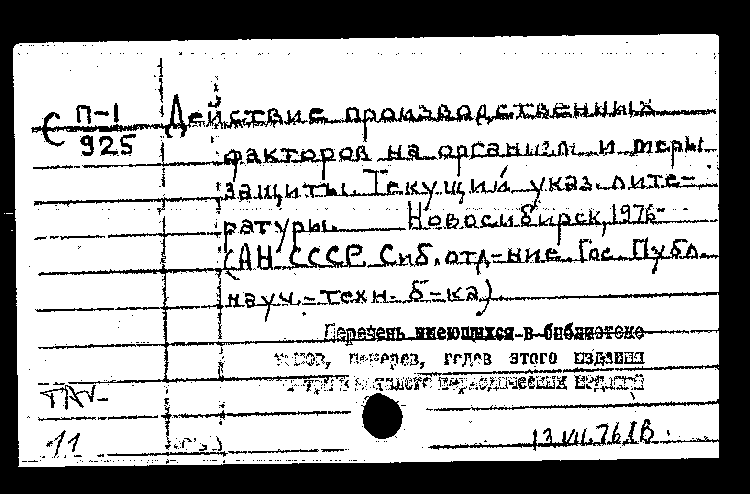 С П-1 Действие производственных
925
факторов на организм и меры
защиты. Текущий указ. лите-
ратуры. Новосибирск, 1976-
(АН СССР. Сиб. отд-ние. Гос. Публ.
науч.-техн. б-ка).
Перечень имеющихся в библиотеке
томов, номеров, годов этого издания
периодических изданий
11
13.VII.76.